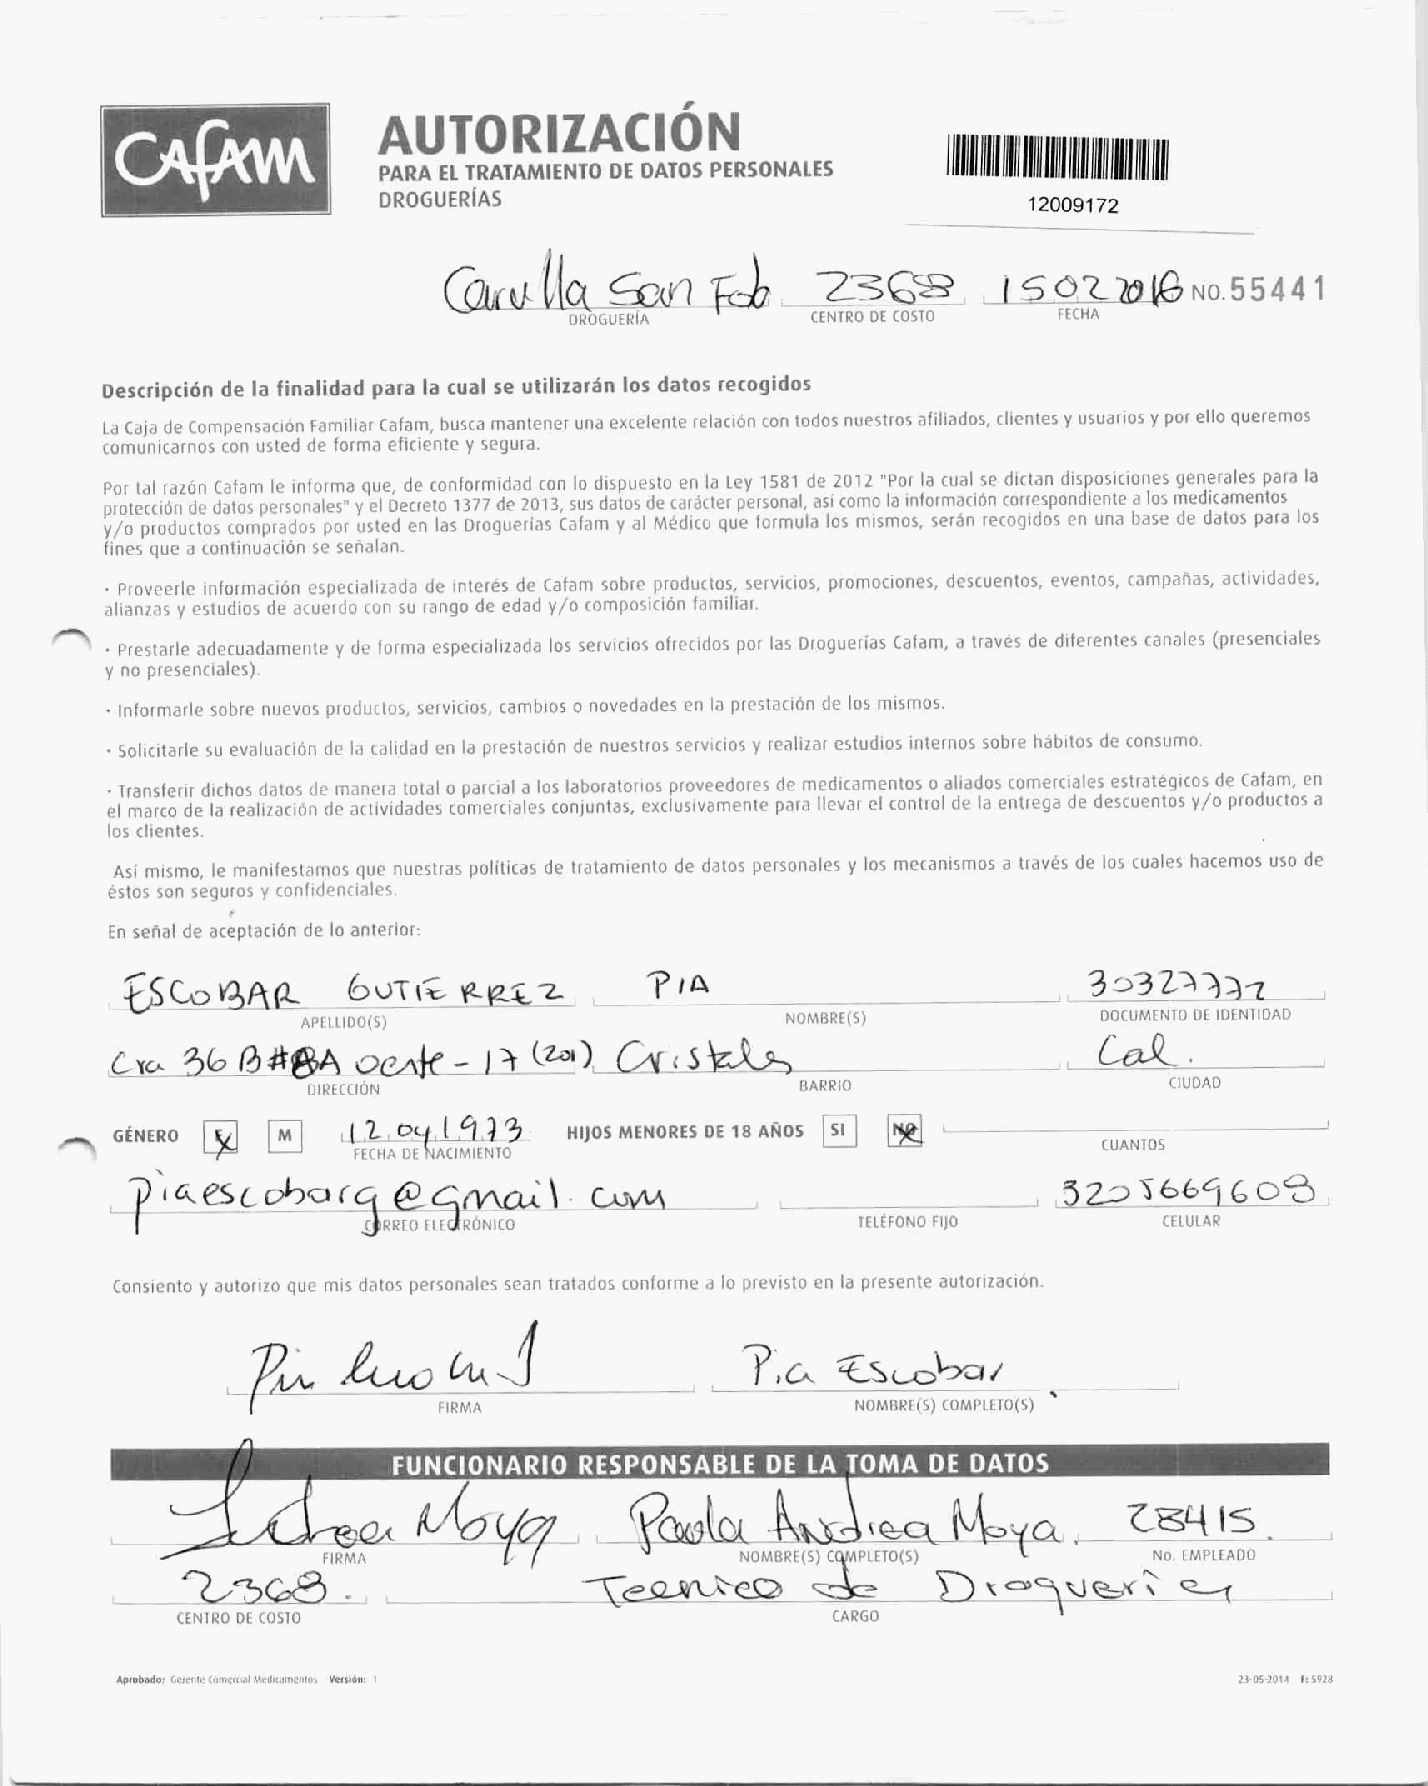 CAFAM
AUTORIZACIÓN
PARA EL TRATAMIENTO DE DATOS PERSONALES
DROGUERÍAS
12009172
Carulla San Fdo 2368 15 02 2016 NO. 55441
DROGUERÍA CENTRO DE COSTO FECHA
Descripción de la finalidad para la cual se utilizarán los datos recogidos
La Caja de Compensación Familiar Cafam, busca mantener una excelente relación con todos nuestros afiliados, clientes y usuarios y por ello queremos
comunicarnos con usted de forma eficiente y segura.
Por tal razón Cafam le informa que, de conformidad con lo dispuesto en la Ley 1581 de 2012 "Por la cual se dictan disposiciones generales para la
protección de datos personales" y el Decreto 1377 de 2013, sus datos de carácter personal, así como la información correspondiente a los medicamentos
y/o productos comprados por usted en las Droguerías Cafam y al Médico que formula los mismos, serán recogidos en una base de datos para los
fines que a continuación se señalan.
· Proveerle información especializada de interés de Cafam sobre productos, servicios, promociones, descuentos, eventos, campañas, actividades,
alianzas y estudios de acuerdo con su rango de edad y/o composición familiar.
· Prestarle adecuadamente y de forma especializada los servicios ofrecidos por las Droguerías Cafam, a través de diferentes canales (presenciales
y no presenciales).
· Informarle sobre nuevos productos, servicios, cambios o novedades en la prestación de los mismos.
· Solicitarle su evaluación de la calidad en la prestación de nuestros servicios y realizar estudios internos sobre hábitos de consumo.
· Transferir dichos datos de manera total o parcial a los laboratorios proveedores de medicamentos o aliados comerciales estratégicos de Cafam, en
el marco de la realización de actividades comerciales conjuntas, exclusivamente para llevar el control de la entrega de descuentos y/o productos a
los clientes.
Así mismo, le manifestamos que nuestras políticas de tratamiento de datos personales y los mecanismos a través de los cuales hacemos uso de
éstos son seguros y confidenciales.
En señal de aceptación de lo anterior:
ESCOBAR GUTIERREZ PIA 30327772
APELLIDO(S) NOMBRE(S) DOCUMENTO DE IDENTIDAD
Cra 36 B # 8A Oeste - 17 (201) Cristales Cal.
DIRECCIÓN BARRIO CIUDAD
GÉNERO X M 12.04.1973 HIJOS MENORES DE 18 AÑOS SI NO
FECHA DE NACIMIENTO CUANTOS
piaescobarg@gmail.com 3205669608
CORREO ELECTRÓNICO TELÉFONO FIJO CELULAR
Consiento y autorizo que mis datos personales sean tratados conforme a lo previsto en la presente autorización.
Pia Escobar
FIRMA NOMBRE(S) COMPLETO(S)
FUNCIONARIO RESPONSABLE DE LA TOMA DE DATOS
Moya Paola Andrea Moya. 28415.
FIRMA NOMBRE(S) COMPLETO(S) No. EMPLEADO
2368. Tecnico de Drogueria
CENTRO DE COSTO CARGO
Aprobador Gerente Comercial Medicamentos Versión: 1 23-05-2014 f: 5928